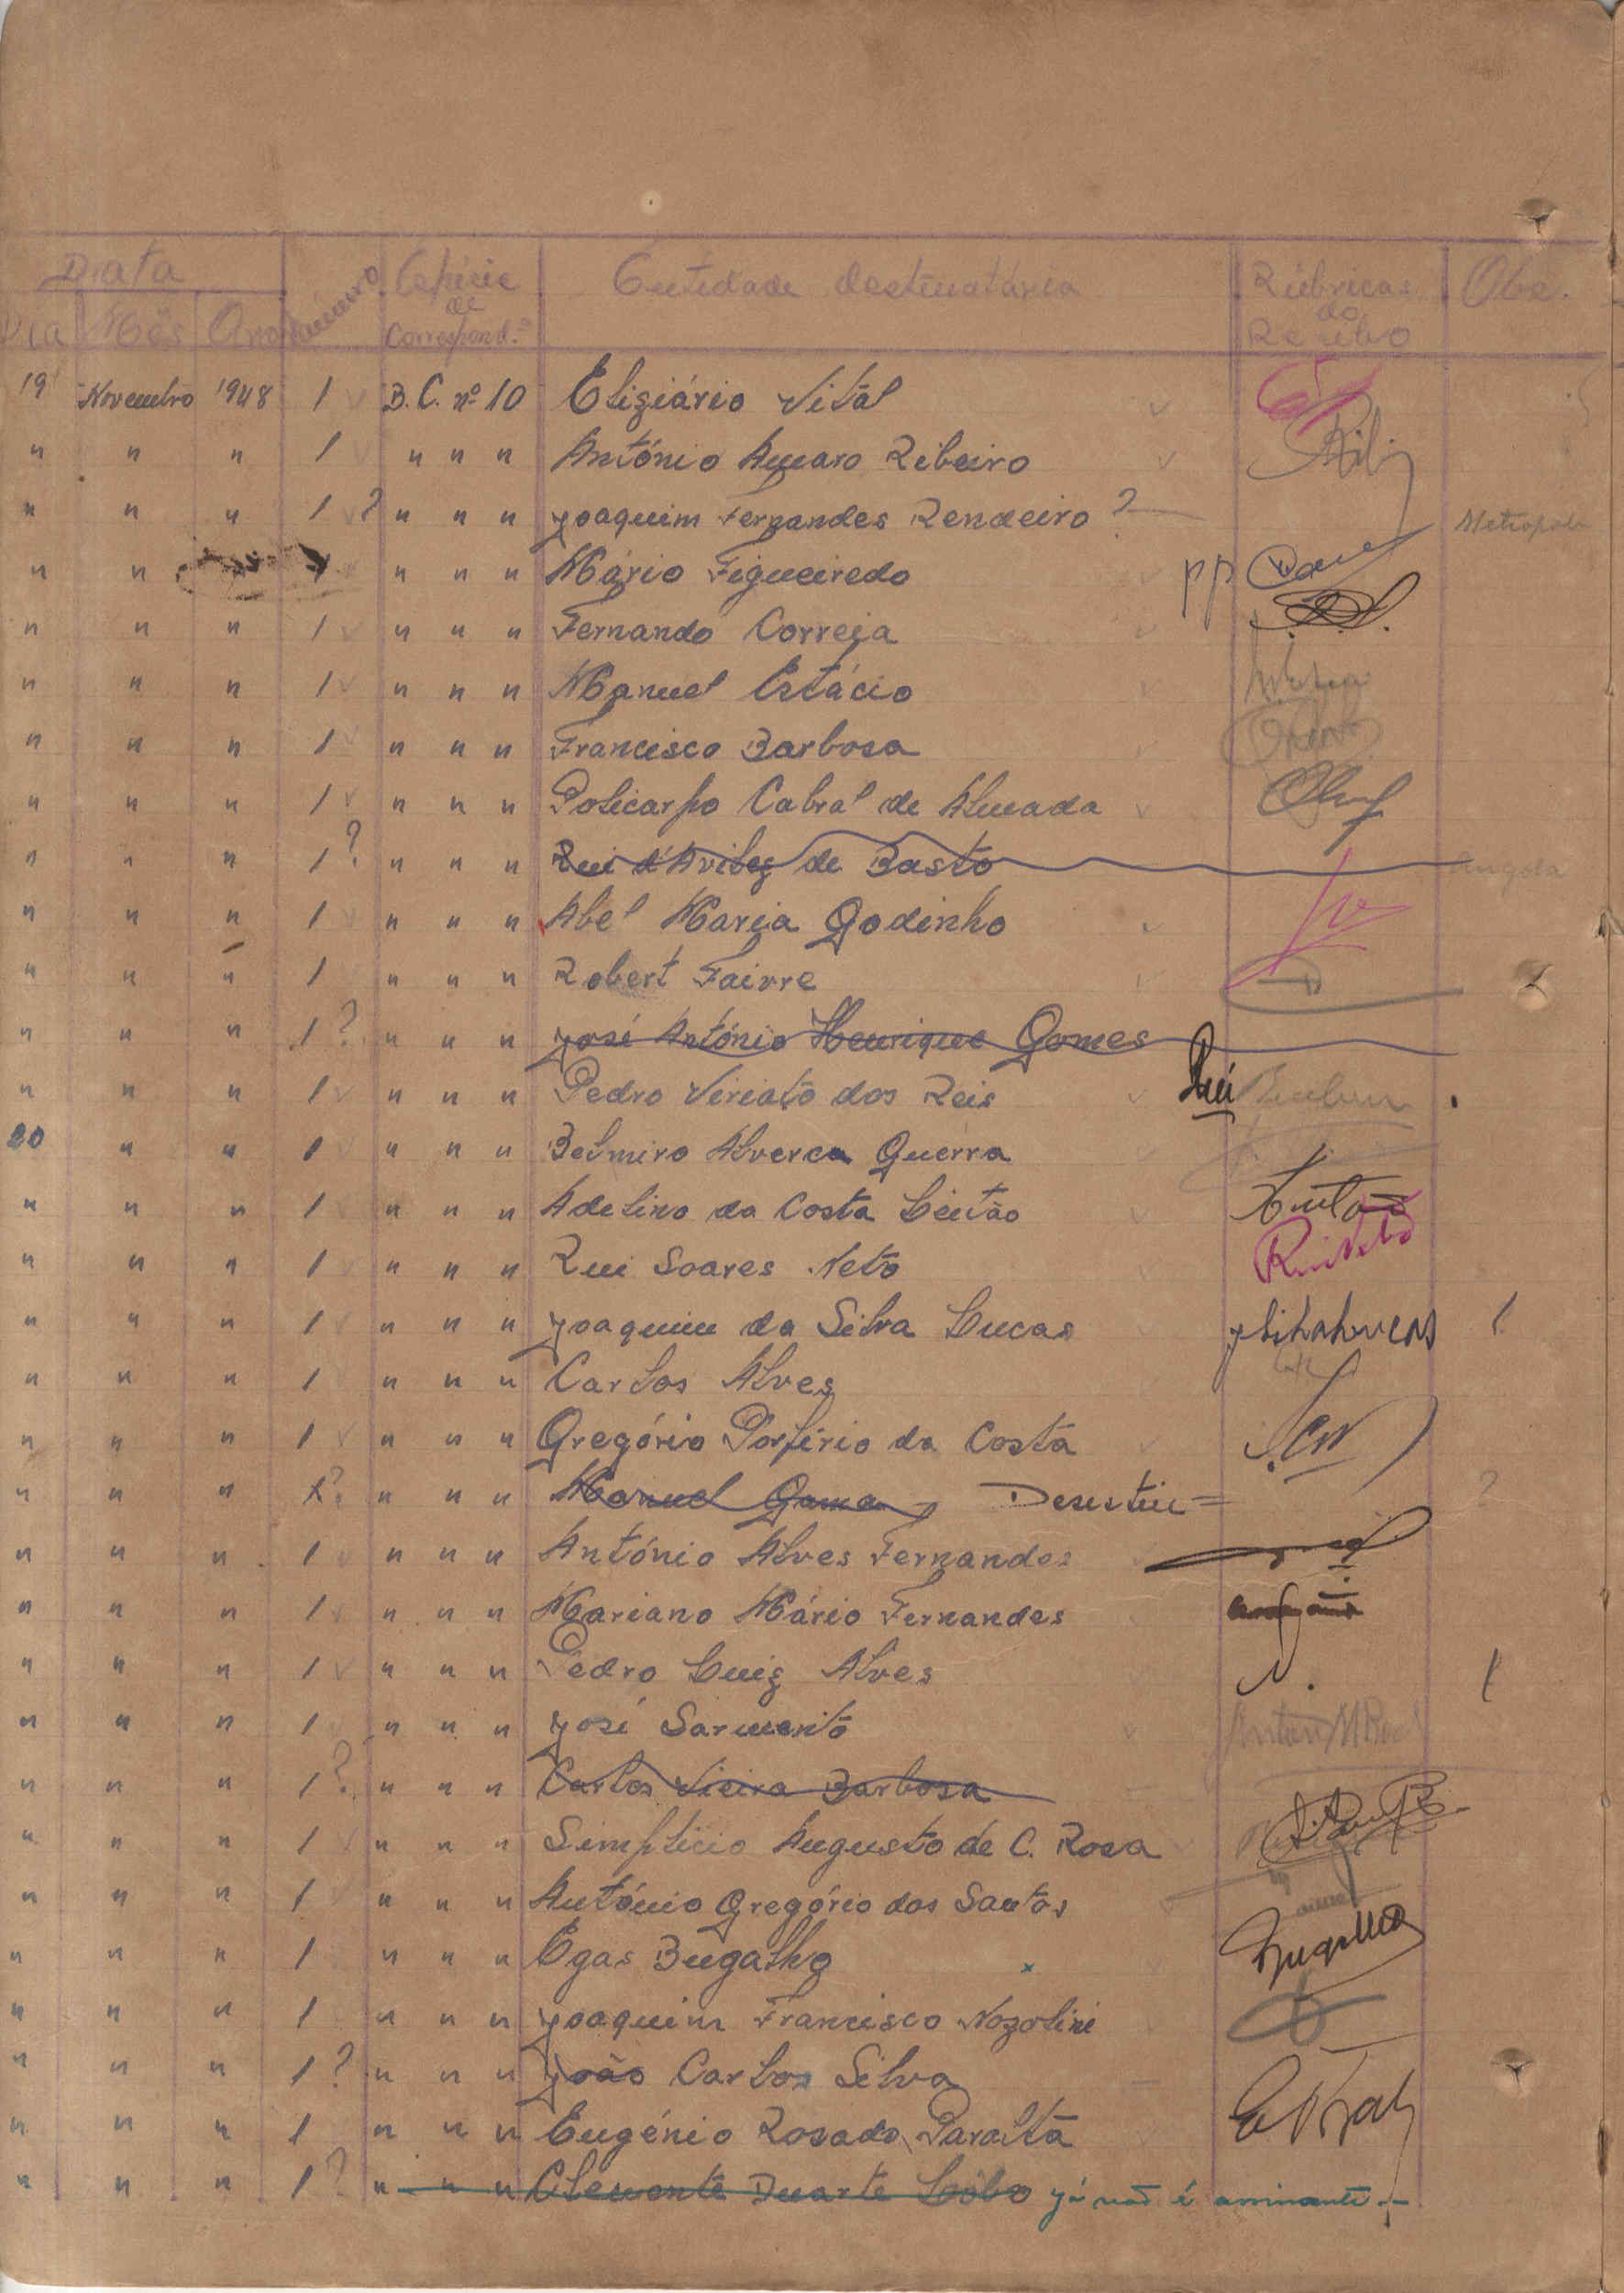 Data Número Espécie de Correspond.ª Entidade destinatária Rúbricas do Recibo Obs.
Dia Mês Ano
19 Novembro 1948 1 B. C. nº 10 Eligiário Vital
" " " 1 " " " António Amaro Ribeiro
" " " 1 ? " " " Joaquim Fernandes Rendeiro ? Metropole
" " " 1 " " " Mário Figueiredo pp
" " " 1 " " " Fernando Correia
" " " 1 " " " Manuel Estácio
" " " 1 " " " Francisco Barbosa
" " " 1 " " " Policarpo Cabral de Almada
" " " 1 ? " " " Rui d'Avilez de Basto Angola
" " " 1 " " " Abel Maria Godinho
" " " 1 " " " Robert Faivre
" " " 1 ? " " " José António Henrique Gomes
" " " 1 " " " Pedro Viriato dos Reis
20 " " 1 " " " Belmiro Alverca Guerra
" " " 1 " " " Adelino da Costa Leitão Leitão
" " " 1 " " " Rui Soares Neto Rui Neto
" " " 1 " " " Joaquim da Silva Lucas JSilvaLucas
" " " 1 " " " Carlos Alves
" " " 1 " " " Gregório Porfírio da Costa
" " " 1 ? " " " Manuel Gama Desistiu = ?
" " " 1 " " " António Alves Fernandes
" " " 1 " " " Mariano Mário Fernandes
" " " 1 " " " Pedro Luiz Alves
" " " 1 " " " José Sarmento
" " " 1 ? " " " Carlos Vieira Barbosa
" " " 1 " " " Simplício Augusto de C. Rosa
" " " 1 " " " António Gregório dos Santos
" " " 1 " " " Egas Bugalho Bugalho
" " " 1 " " " Joaquim Francisco Nozolini
" " " 1 ? " " " João Carlos Silva
" " " 1 " " " Eugénio Rosado Paralta
" " " 1 ? " " " Clemente Duarte Lobo já não é assinante.-